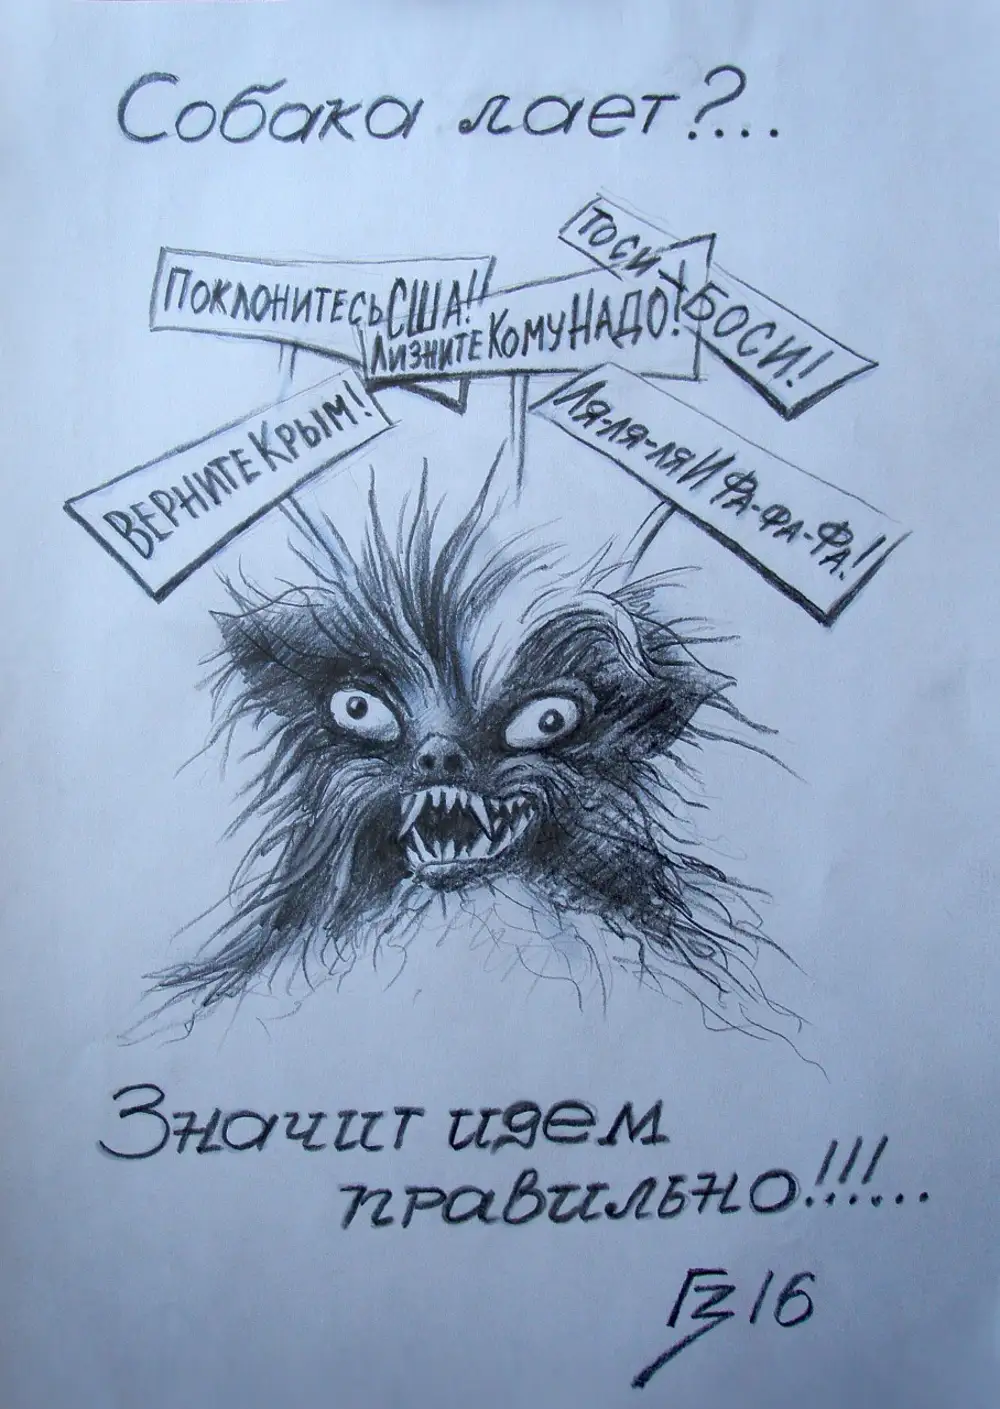 Собака лает?...
Тоси Х Боси!
Поклонитесь США!!
Лизните Кому Надо!
Верните Крым!
Ля-ля-ля И Фа-фа-Фа!
Значит идем
правильно!!!...
ГЗ 16